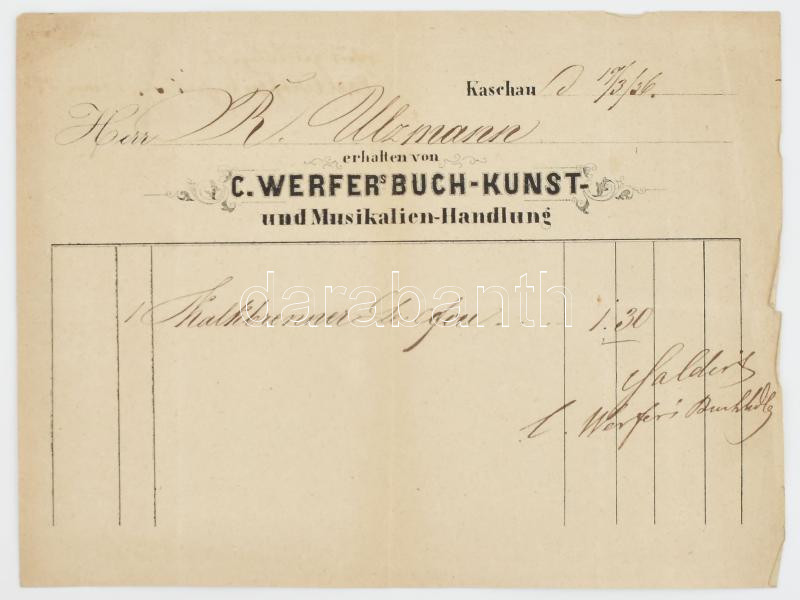 Kaschau d 19/3/56.
Herr R. Ulzmann
erhalten von
C. WERFERs BUCH-KUNST-
und Musikalien-Handlung
1 Kalkbrenner 1. 30
darabanth
Saldirt
C. Werfer's Buchhdlg